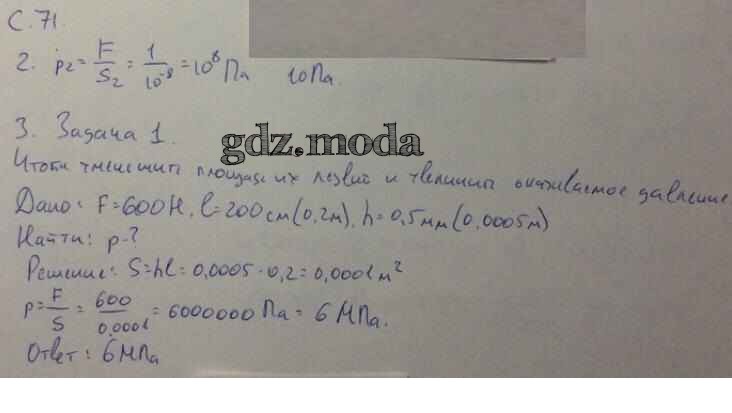 С. 71.
2. p₂ = F/S₂ = 1/10⁻⁸ = 10⁸ Па 10 Па.
3. Задача 1.
gdz.moda
Чтобы уменьшить площадь их лезвий и увеличить оказываемое давление
Дано: F = 600 Н, l = 200 см (0,2 м), h = 0,5 мм (0,0005 м)
Найти: p-?
Решение: S = hl = 0,0005 · 0,2 = 0,0001 м²
p = F/S = 600/0,0001 = 6000000 Па = 6 МПа.
Ответ: 6 МПа